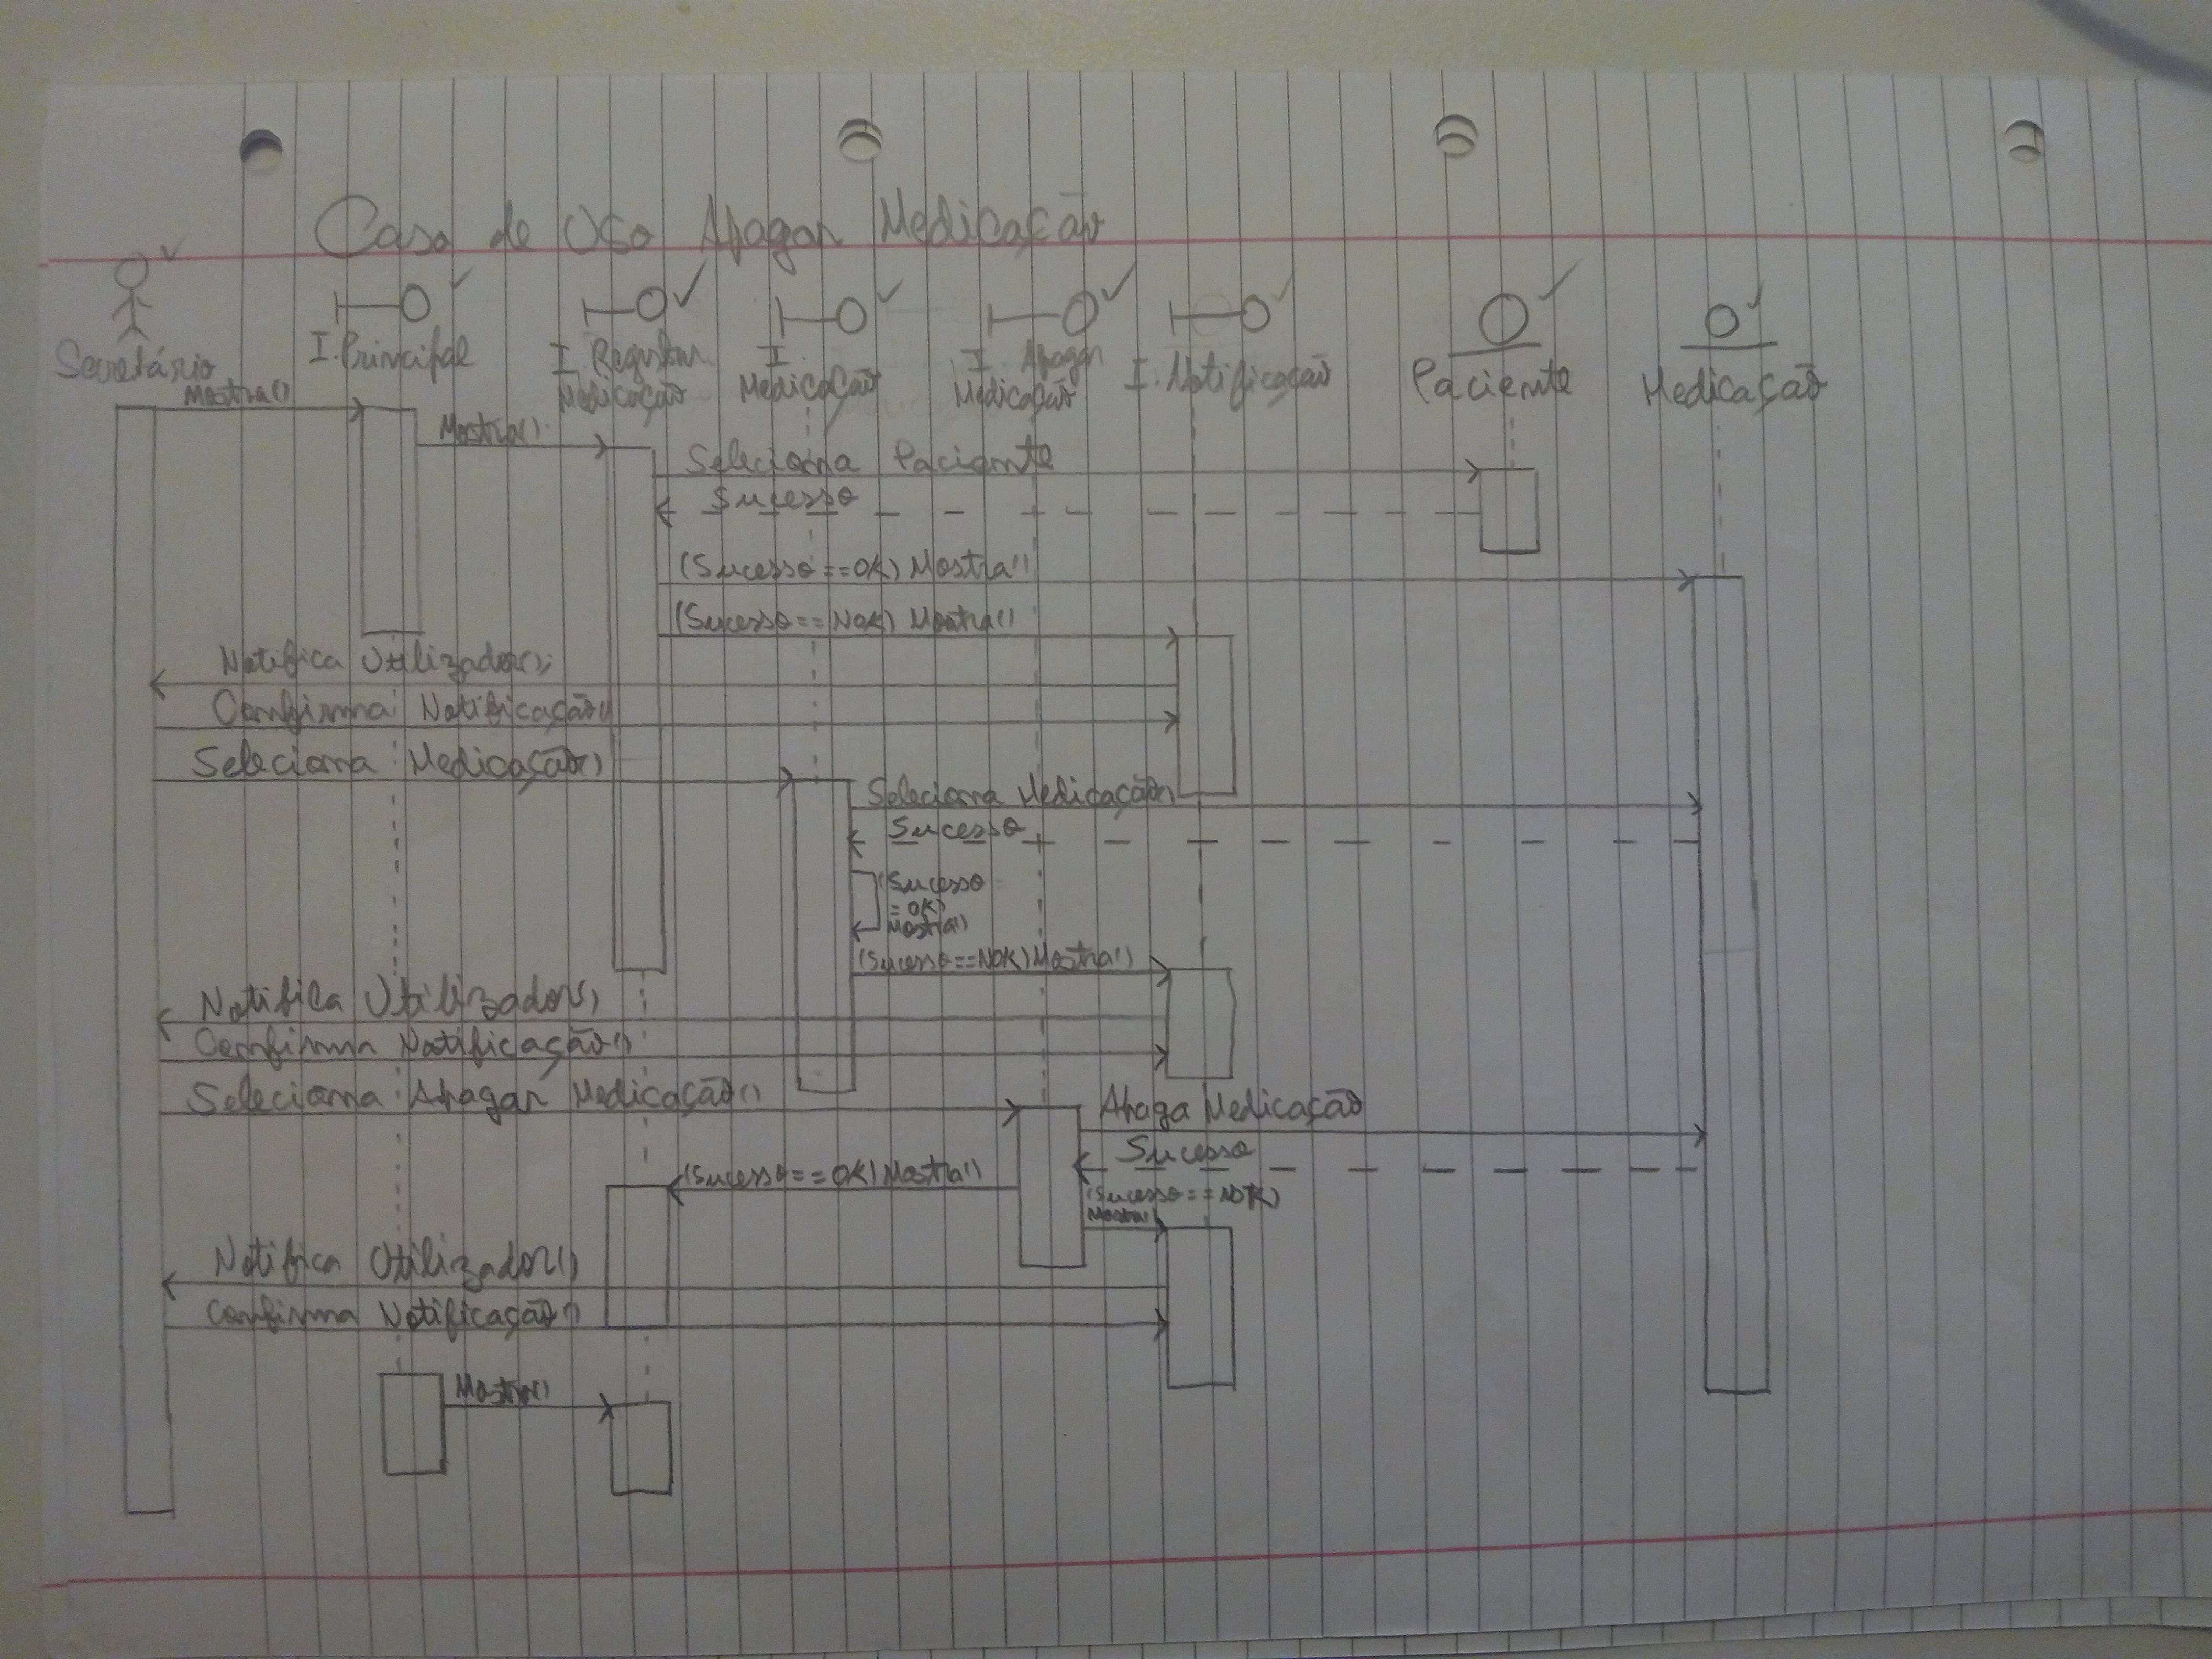 Caso de Uso Apagar Medicação
Secretário
I.Principal
I. Registar
Medicação
I.
Medicação
I. Apagar
Medicação
I. Notificação
Paciente
Medicação
Mostra()
Mostra()
Seleciona Paciente
Sucesso
(Sucesso==OK) Mostra()
(Sucesso==NOK) Mostra()
Notifica Utilizador();
Confirma Notificação()
Seleciona Medicação()
Seleciona Medicação()
Sucesso
(Sucesso
=OK)
Mostra()
(Sucesso==NOK) Mostra()
Notifica Utilizador()
Confirma Notificação()
Seleciona Apagar Medicação()
Apaga Medicação
Sucesso
(Sucesso==OK) Mostra()
(Sucesso==NOK)
Mostra()
Notifica Utilizador()
Confirma Notificação()
Mostra()